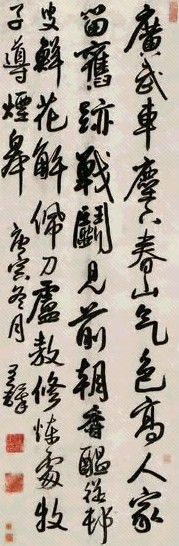 廣武車塵下春山气色高人家
留舊跡戰鬭見前朝醍從邨
叟鮮花解佩刀盧敖修煉處牧
子導煙皋 庚寅冬月 王鐸